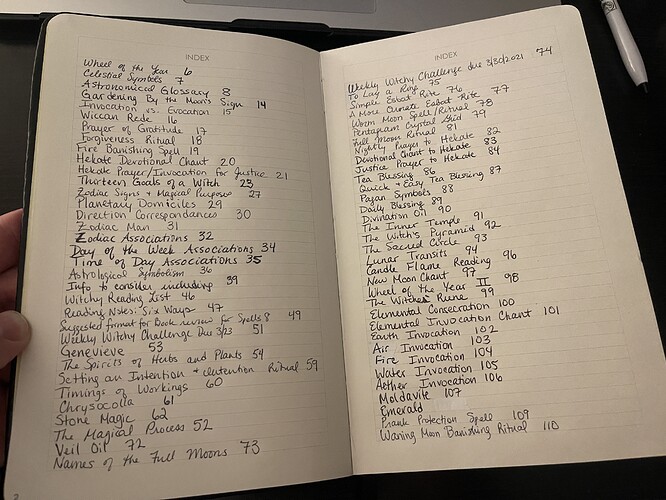 INDEX
Wheel of the Year 6
Celestial Symbols 7
Astronomical Glossary 8
Gardening By the Moon's Sign 14
Invocation vs. Evocation 15
Wiccan Rede 16
Prayer of Gratitude 17
Forgiveness Ritual 18
Fire Banishing Spell 19
Hekate Devotional Chant 20
Hekate Prayer/Invocation for Justice 21
Thirteen Goals of a Witch 23
Zodiac Signs & Magical Purposes 27
Planetary Domiciles 29
Direction Correspondances 30
Zodiac Man 31
Zodiac Associations 32
Day of the Week Associations 34
Time of Day Associations 35
Astrological Symbolism 36
Info to consider including 39
Witchy Reading List 46
Reading Notes: Six Ways 47
Suggested format for book reviews for Spells 8 49
Weekly Witchy Challenge Due 3/23 51
Genevieve 53
The Spirits of Herbs and Plants 54
Setting an Intention & Intention Ritual 59
Timings of Workings 60
Chrysocolla 61
Stone Magic 62
The Magical Process 52
Veil Oil 72
Names of the Full Moons 73
2
INDEX
Weekly Witchy Challenge due 3/30/2021 74
To Lay a Ring 75
Simple Esbat Rite 76
A More Ornate Esbat Rite 77
Worm Moon Spell/Ritual 78
Pentagram Crystal Grid 79
Full Moon Ritual 81
Nightly Prayer to Hekate 82
Devotional Chant to Hekate 83
Justice Prayer to Hekate 84
Tea Blessing 86
Quick & Easy Tea Blessing 87
Pagan Symbols 88
Daily Blessing 89
Divination Oil 90
The Inner Temple 91
The Witch's Pyramid 92
The Sacred Circle 93
Lunar Transits 94
Candle Flame Reading 96
New Moon Chant 97
Wheel of the Year II 98
The Witches Rune 99
Elemental Consecration 100
Elemental Invocation Chant 101
Earth Invocation 102
Air Invocation 103
Fire Invocation 104
Water Invocation 105
Aether Invocation 106
Moldavite 107
Emerald
Prank Protection Spell 109
Waning Moon Banishing Ritual 110